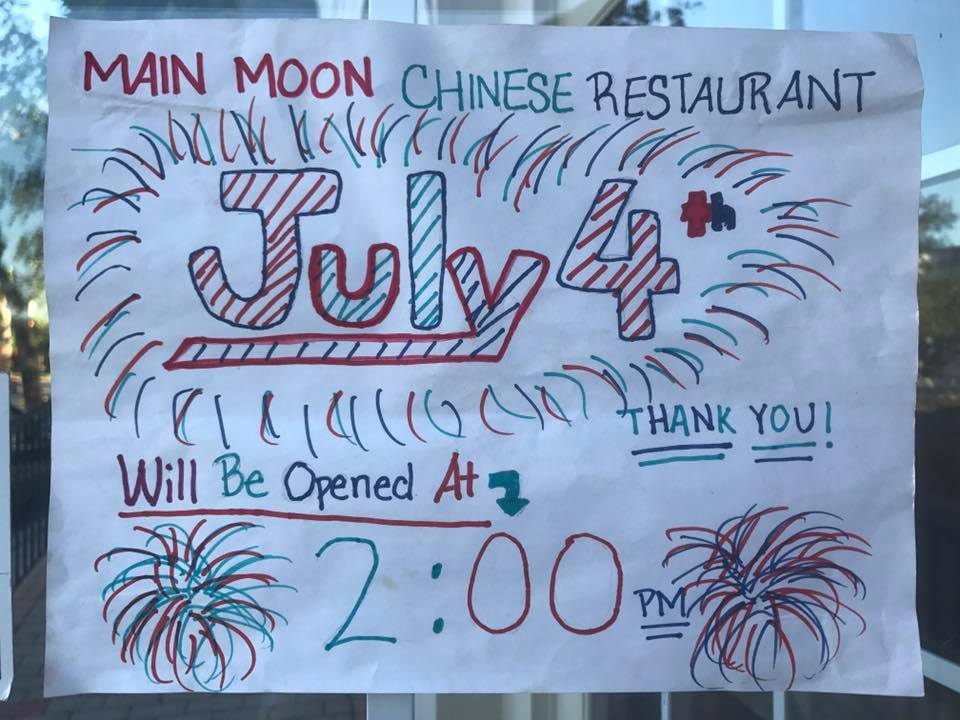 MAIN MOON CHINESE RESTAURANT
July 4th
THANK YOU!
Will Be Opened At
2:00 PM